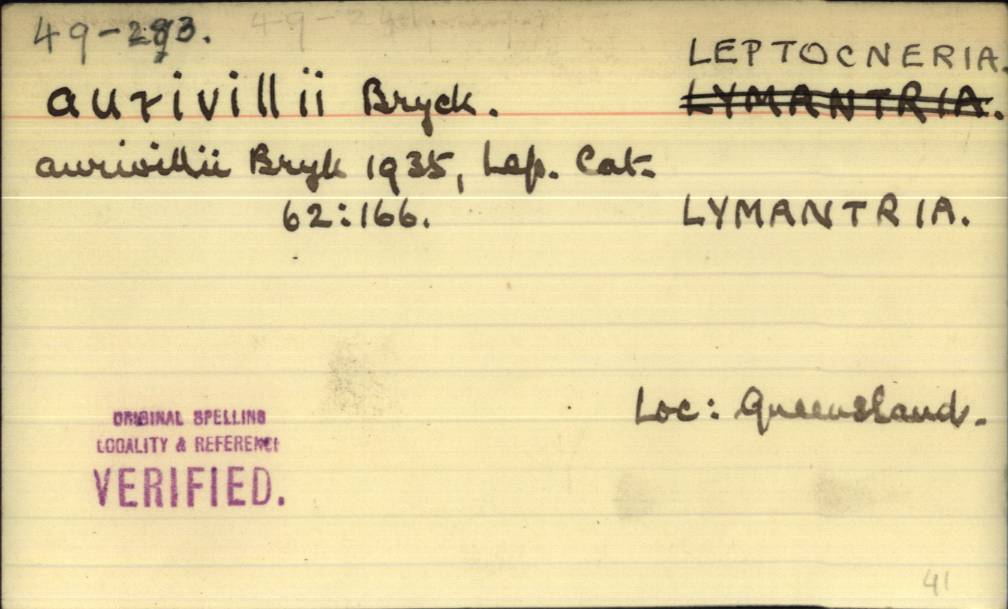 49-293.
LEPTOCNERIA.
aurivillii Bryck. LYMANTRIA.
aurivillii Bryk 1935, Lep. Cat.
62:166. LYMANTRIA.
Loc: Queensland.
ORIGINAL SPELLING
LOCALITY & REFERENCE
VERIFIED.
41